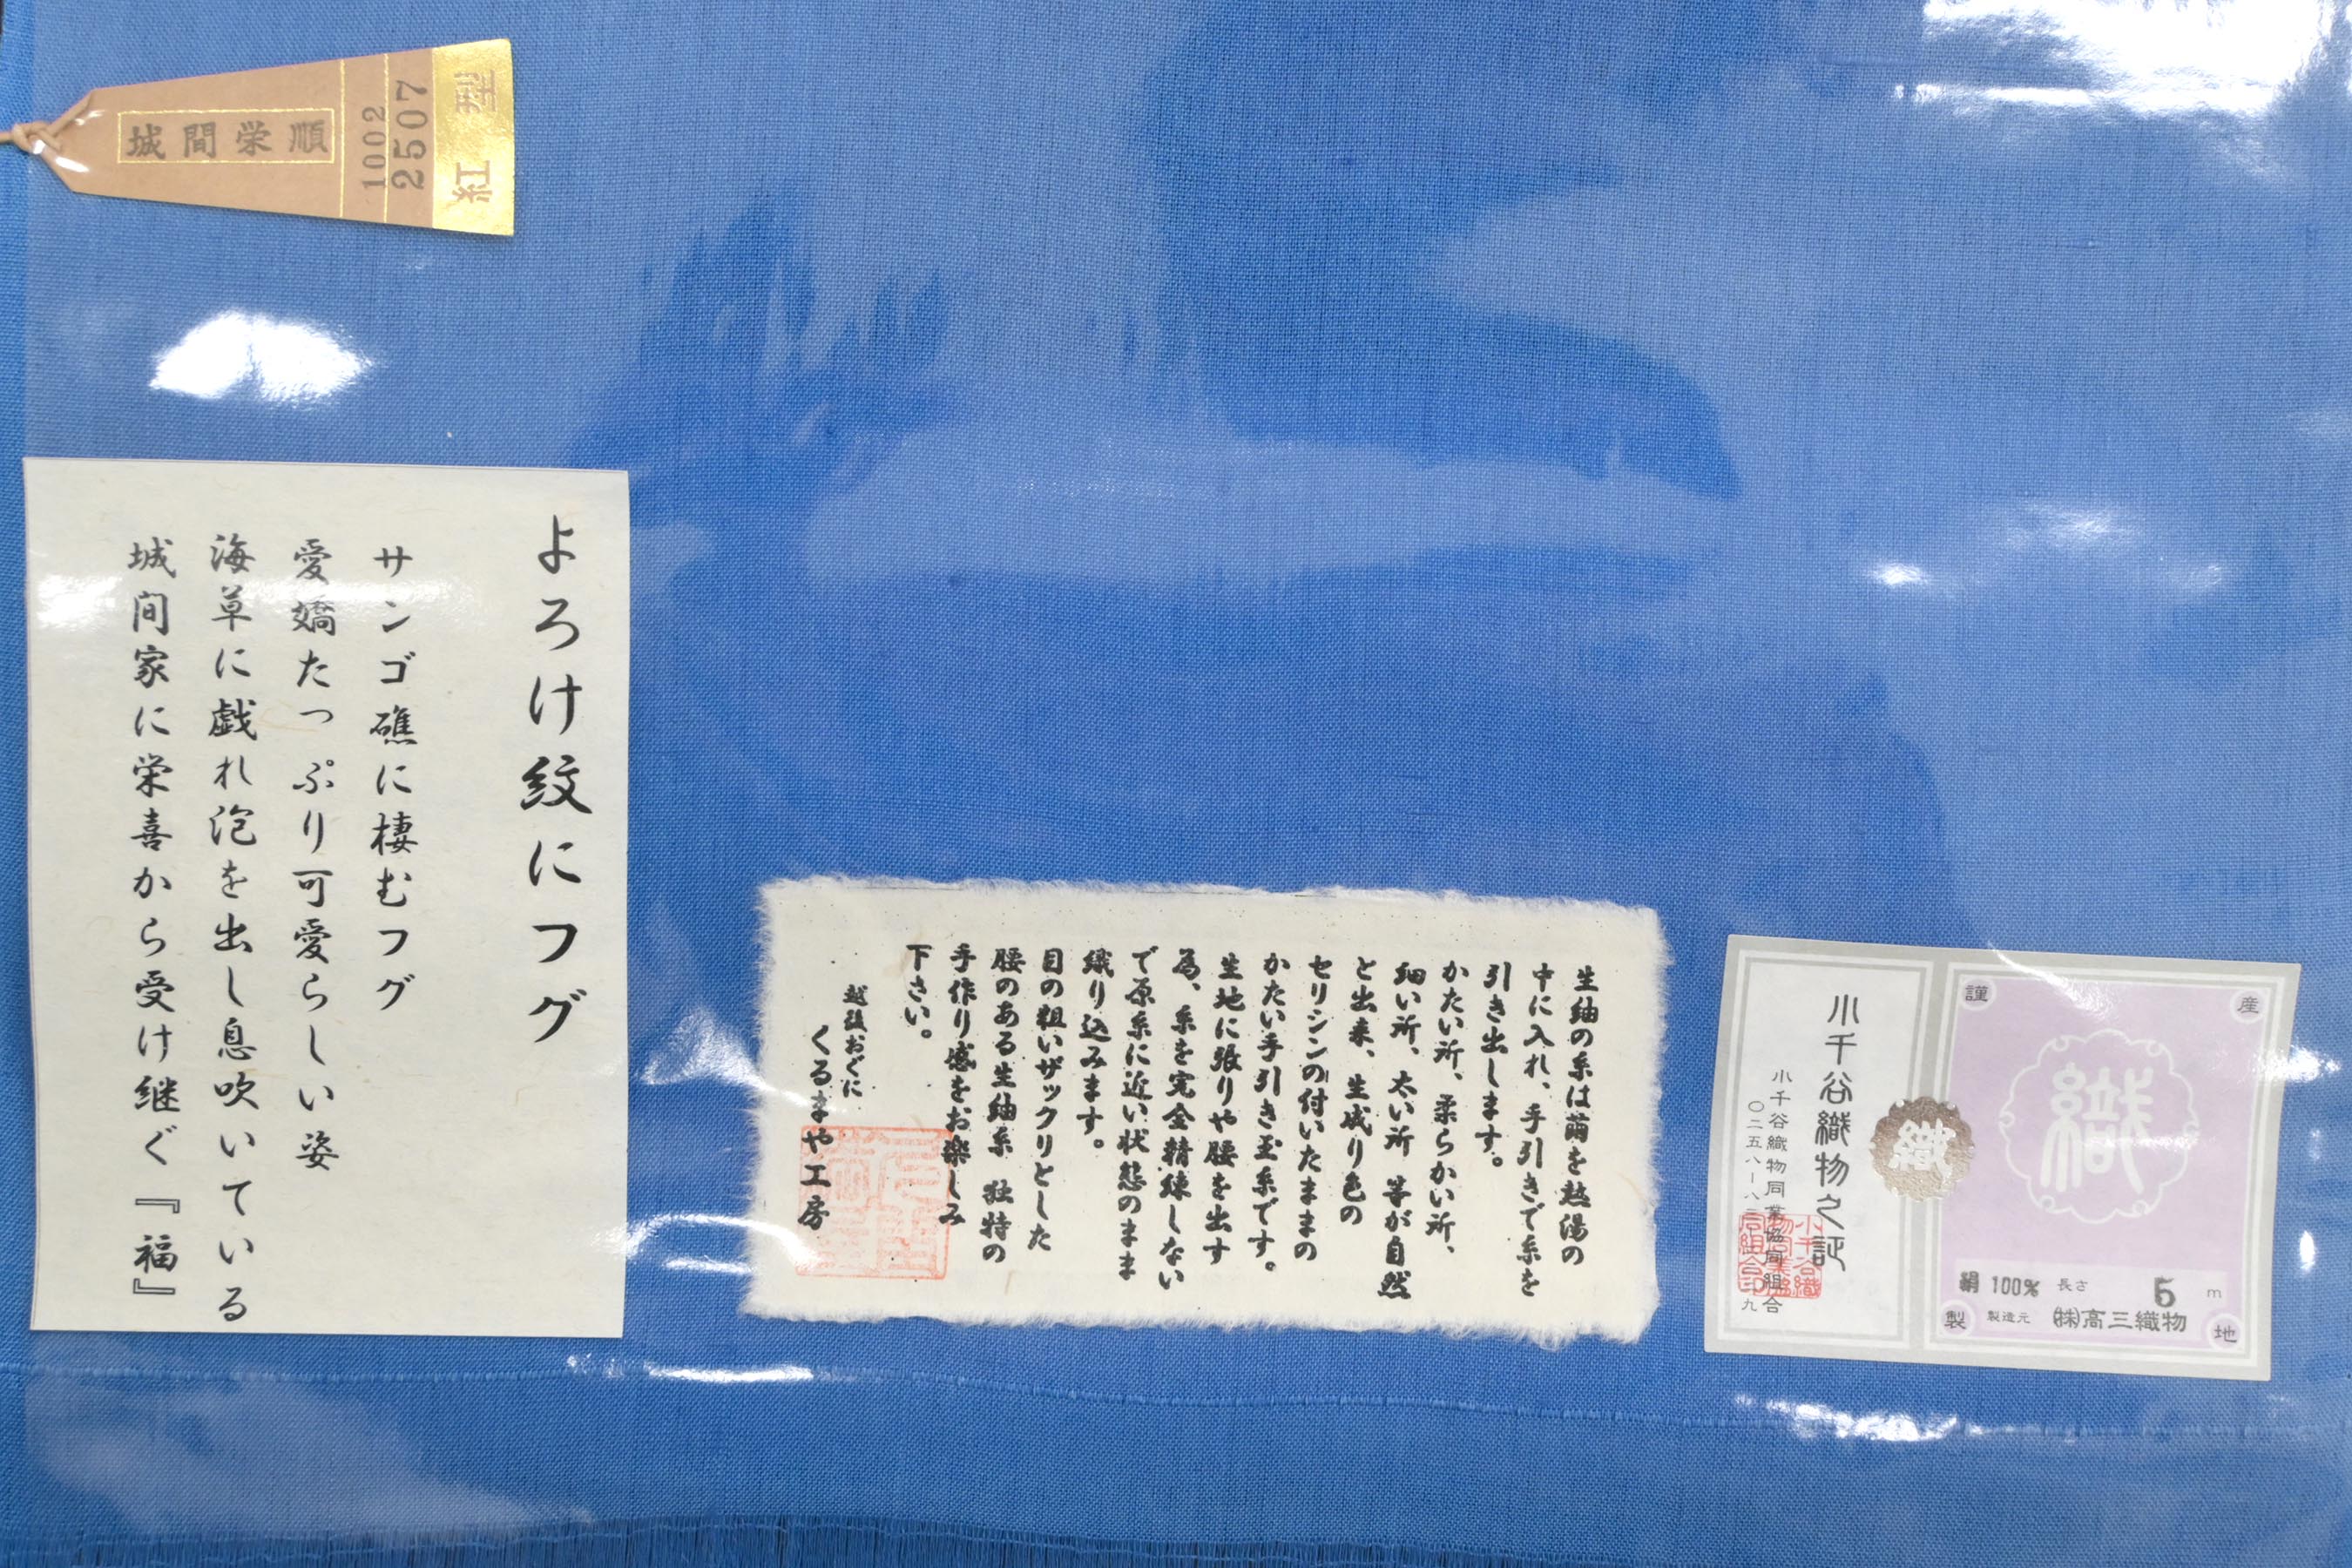 紅型
2507
1002
城間栄順
よろけ紋にフグ
サンゴ礁に棲むフグ
愛嬌たっぷり可愛らしい姿
海草に戯れ泡を出し息吹いている
城間家に栄喜から受け継ぐ『福』
生紬の糸は繭を熱湯の
中に入れ、手引きで糸を
引き出します。
かたい所、柔らかい所、
細い所、太い所 等が自然
と出来、生成り色の
セリシンの付いたままの
かたい手引き玉糸です。
生地に張りや腰を出す
為、糸を完全精練しない
で原糸に近い状態のまま
織り込みます。
目の粗いザックリとした
腰のある生紬糸 独特の
手作り感をお楽しみ
下さい。
越後おぐに
くるまや工房
謹産製地
織
絹 100% 長さ 5 m
製造元 ㈱高三織物
織
小千谷織物之証
小千谷織物同業協同組合